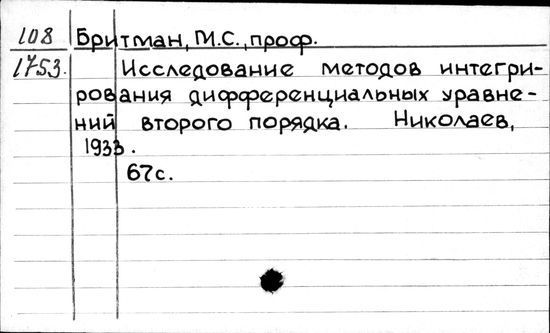 108 Бритман, М.С., проф.
1753. Исследование методов интегри-
рования дифференциальных уравне-
ний второго порядка. Николаев,
1933.
67с.